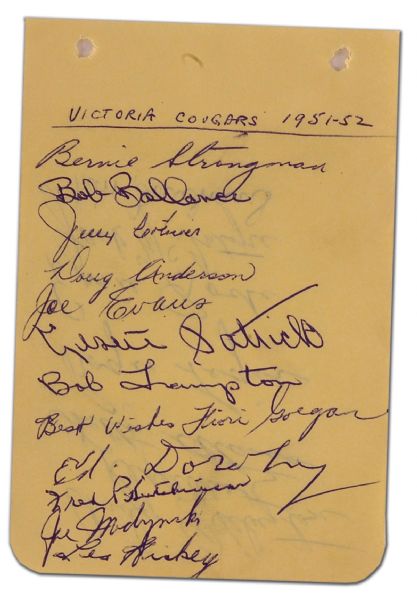 VICTORIA COUGARS 1951-52
Bernie Strongman
Bob Ballance
Jerry Cotnoir
Doug Anderson
Joe Evans
Bob Frampton
Best Wishes Fiori Goegan
Ed. Dorohoy
Fred P. Hutchinson
Joe Medynski
Les Hickey